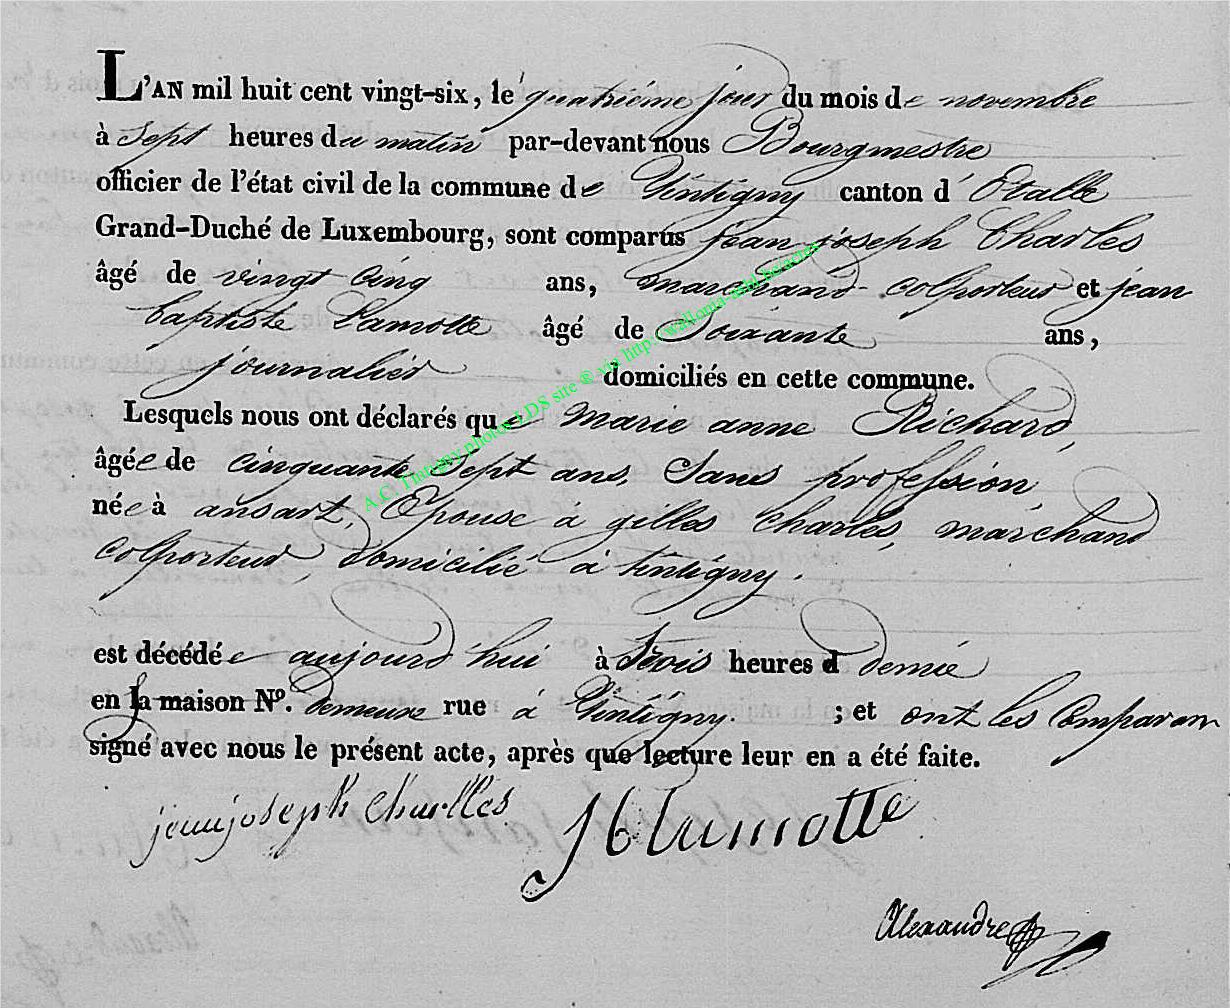 L'AN mil huit cent vingt-six, le quatrième jour du mois de novembre
à Sept heures du matin par-devant nous Bourgmestre
officier de l'état civil de la commune de Tintigny canton d'Etalle
Grand-Duché de Luxembourg, sont comparus jean joseph Charles
âgé de vingt cinq ans, marchand colporteur et jean
baptiste Lamotte âgé de Soixante ans,
journalier domiciliés en cette commune.
Lesquels nous ont déclarés que marie anne Richard,
âgée de cinquante Sept ans, Sans profession
née à ansart, Epouse à gilles Charles, marchand
colporteur, domicilié à tintigny.
est décédée aujourd'hui à trois heures d demie
en la maison Nº. demeure rue à Tintigny. ; et ont les Comparan
signé avec nous le présent acte, après que lecture leur en a été faite.
jean joseph Charlles JBLamotte
Alexandre
A.C. Tintigny photos LDS site ® via http://wallonia-asbl.be/actes